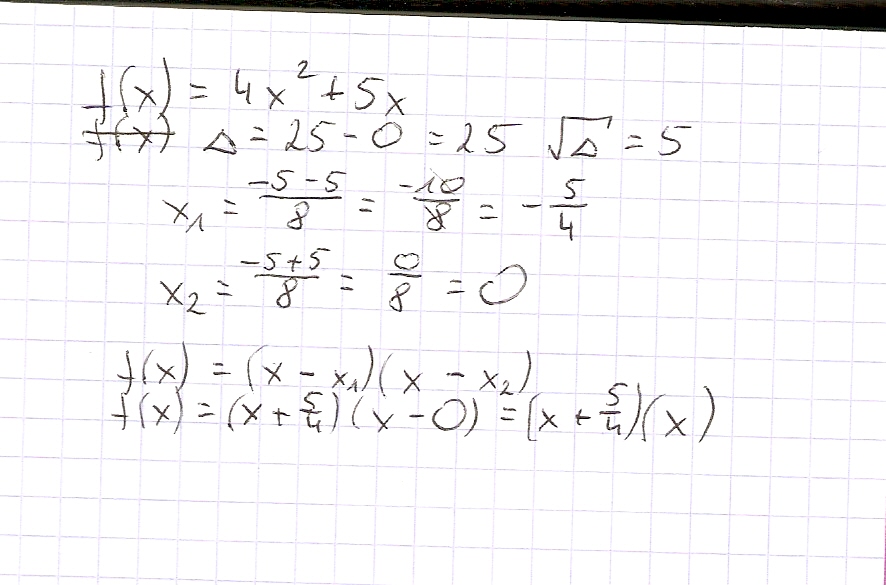 f(x) = 4x² + 5x
f(x) Δ = 25 - 0 = 25 √Δ = 5
x₁ = (-5-5)/8 = -10/8 = -5/4
x₂ = (-5+5)/8 = 0/8 = 0
f(x) = (x - x₁)(x - x₂)
f(x) = (x + 5/4)(x - 0) = (x + 5/4)(x)